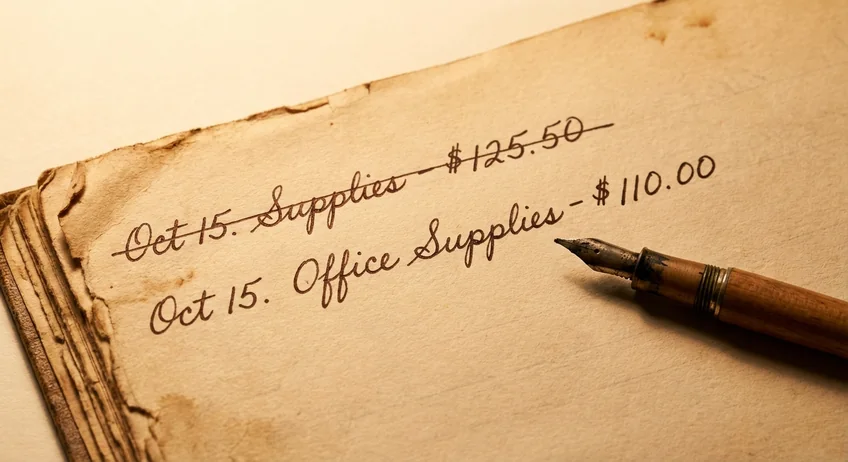 Oct 15. Supplies - $125.50
Oct 15. Office Supplies - $110.00